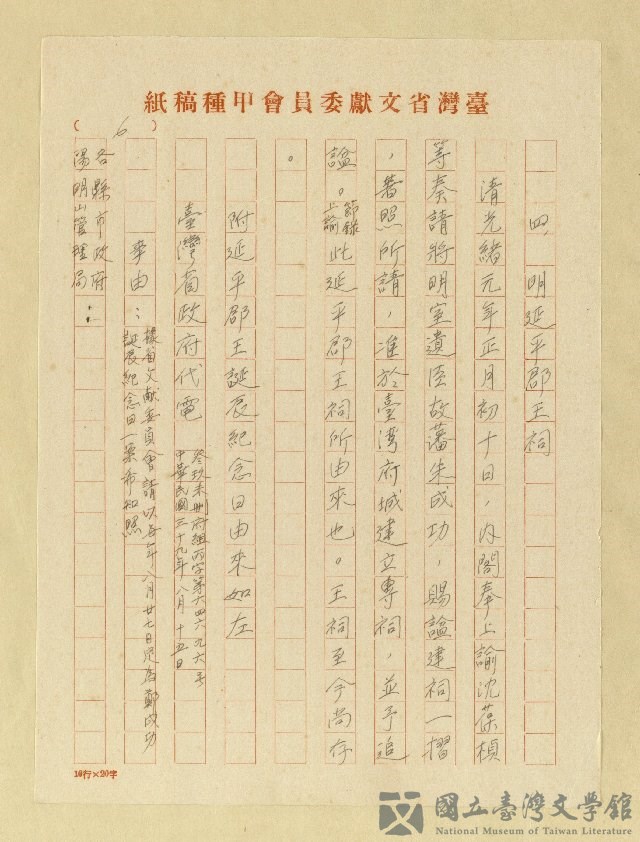 臺灣省文獻委員會甲種稿紙
( 6 )
四、明延平郡王祠
清光緒元年正月初十日,內閣奉上諭沈葆楨
等奏請將明室遺臣故藩朱成功,賜諡建祠一摺
,著照所請,准於臺湾府城建立專祠,並予追
諡。節錄上諭此延平郡王祠所由來也。王祠至今尚存
。
附延平郡王誕辰紀念日由來如左
臺灣省政府代電
叁玖未刪府組丙字第六四六九六号
中華民國三十九年八月十五日
事由:
據省文獻委員會請以每年八月廿七日定為鄭成功
誕辰紀念日一案希知照
各縣市政府
陽明山管理局:
10行×20字
國立臺灣文學館
National Museum of Taiwan Literature